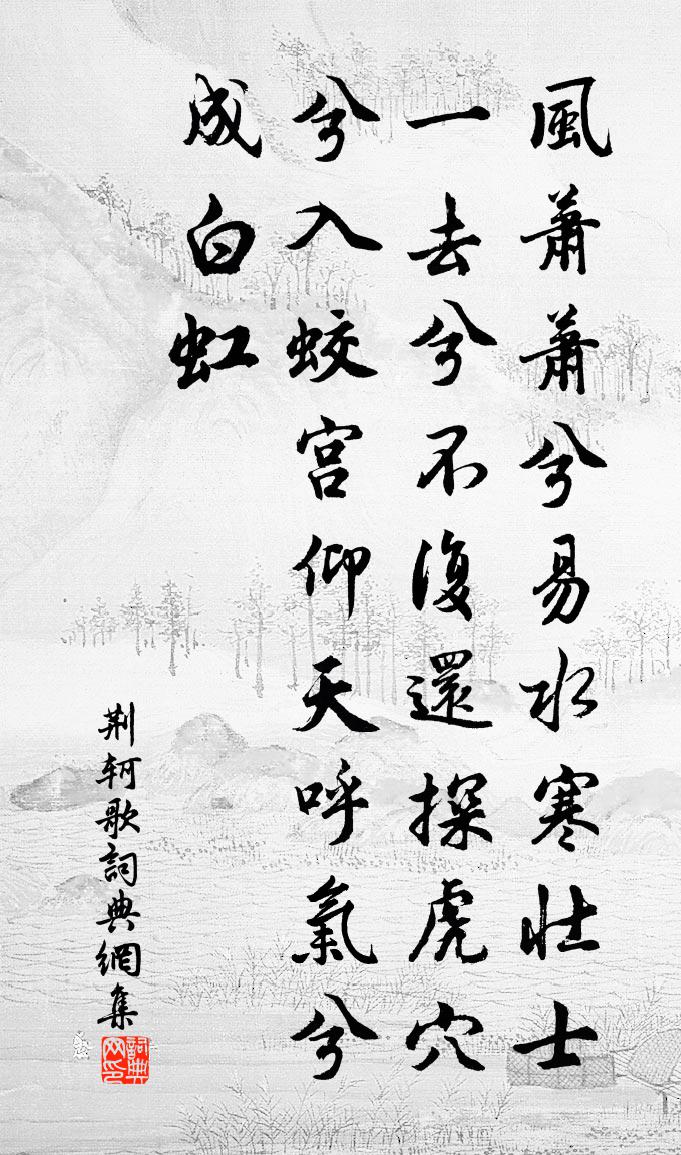 風蕭蕭兮易水寒壯士
一去兮不復還探虎穴
兮入蛟宮仰天呼氣兮
成白虹
荆軻歌詞典網集
詞典网印